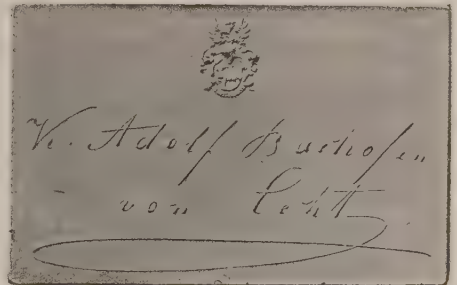 Vr. Adolf Bachofen
von Echt